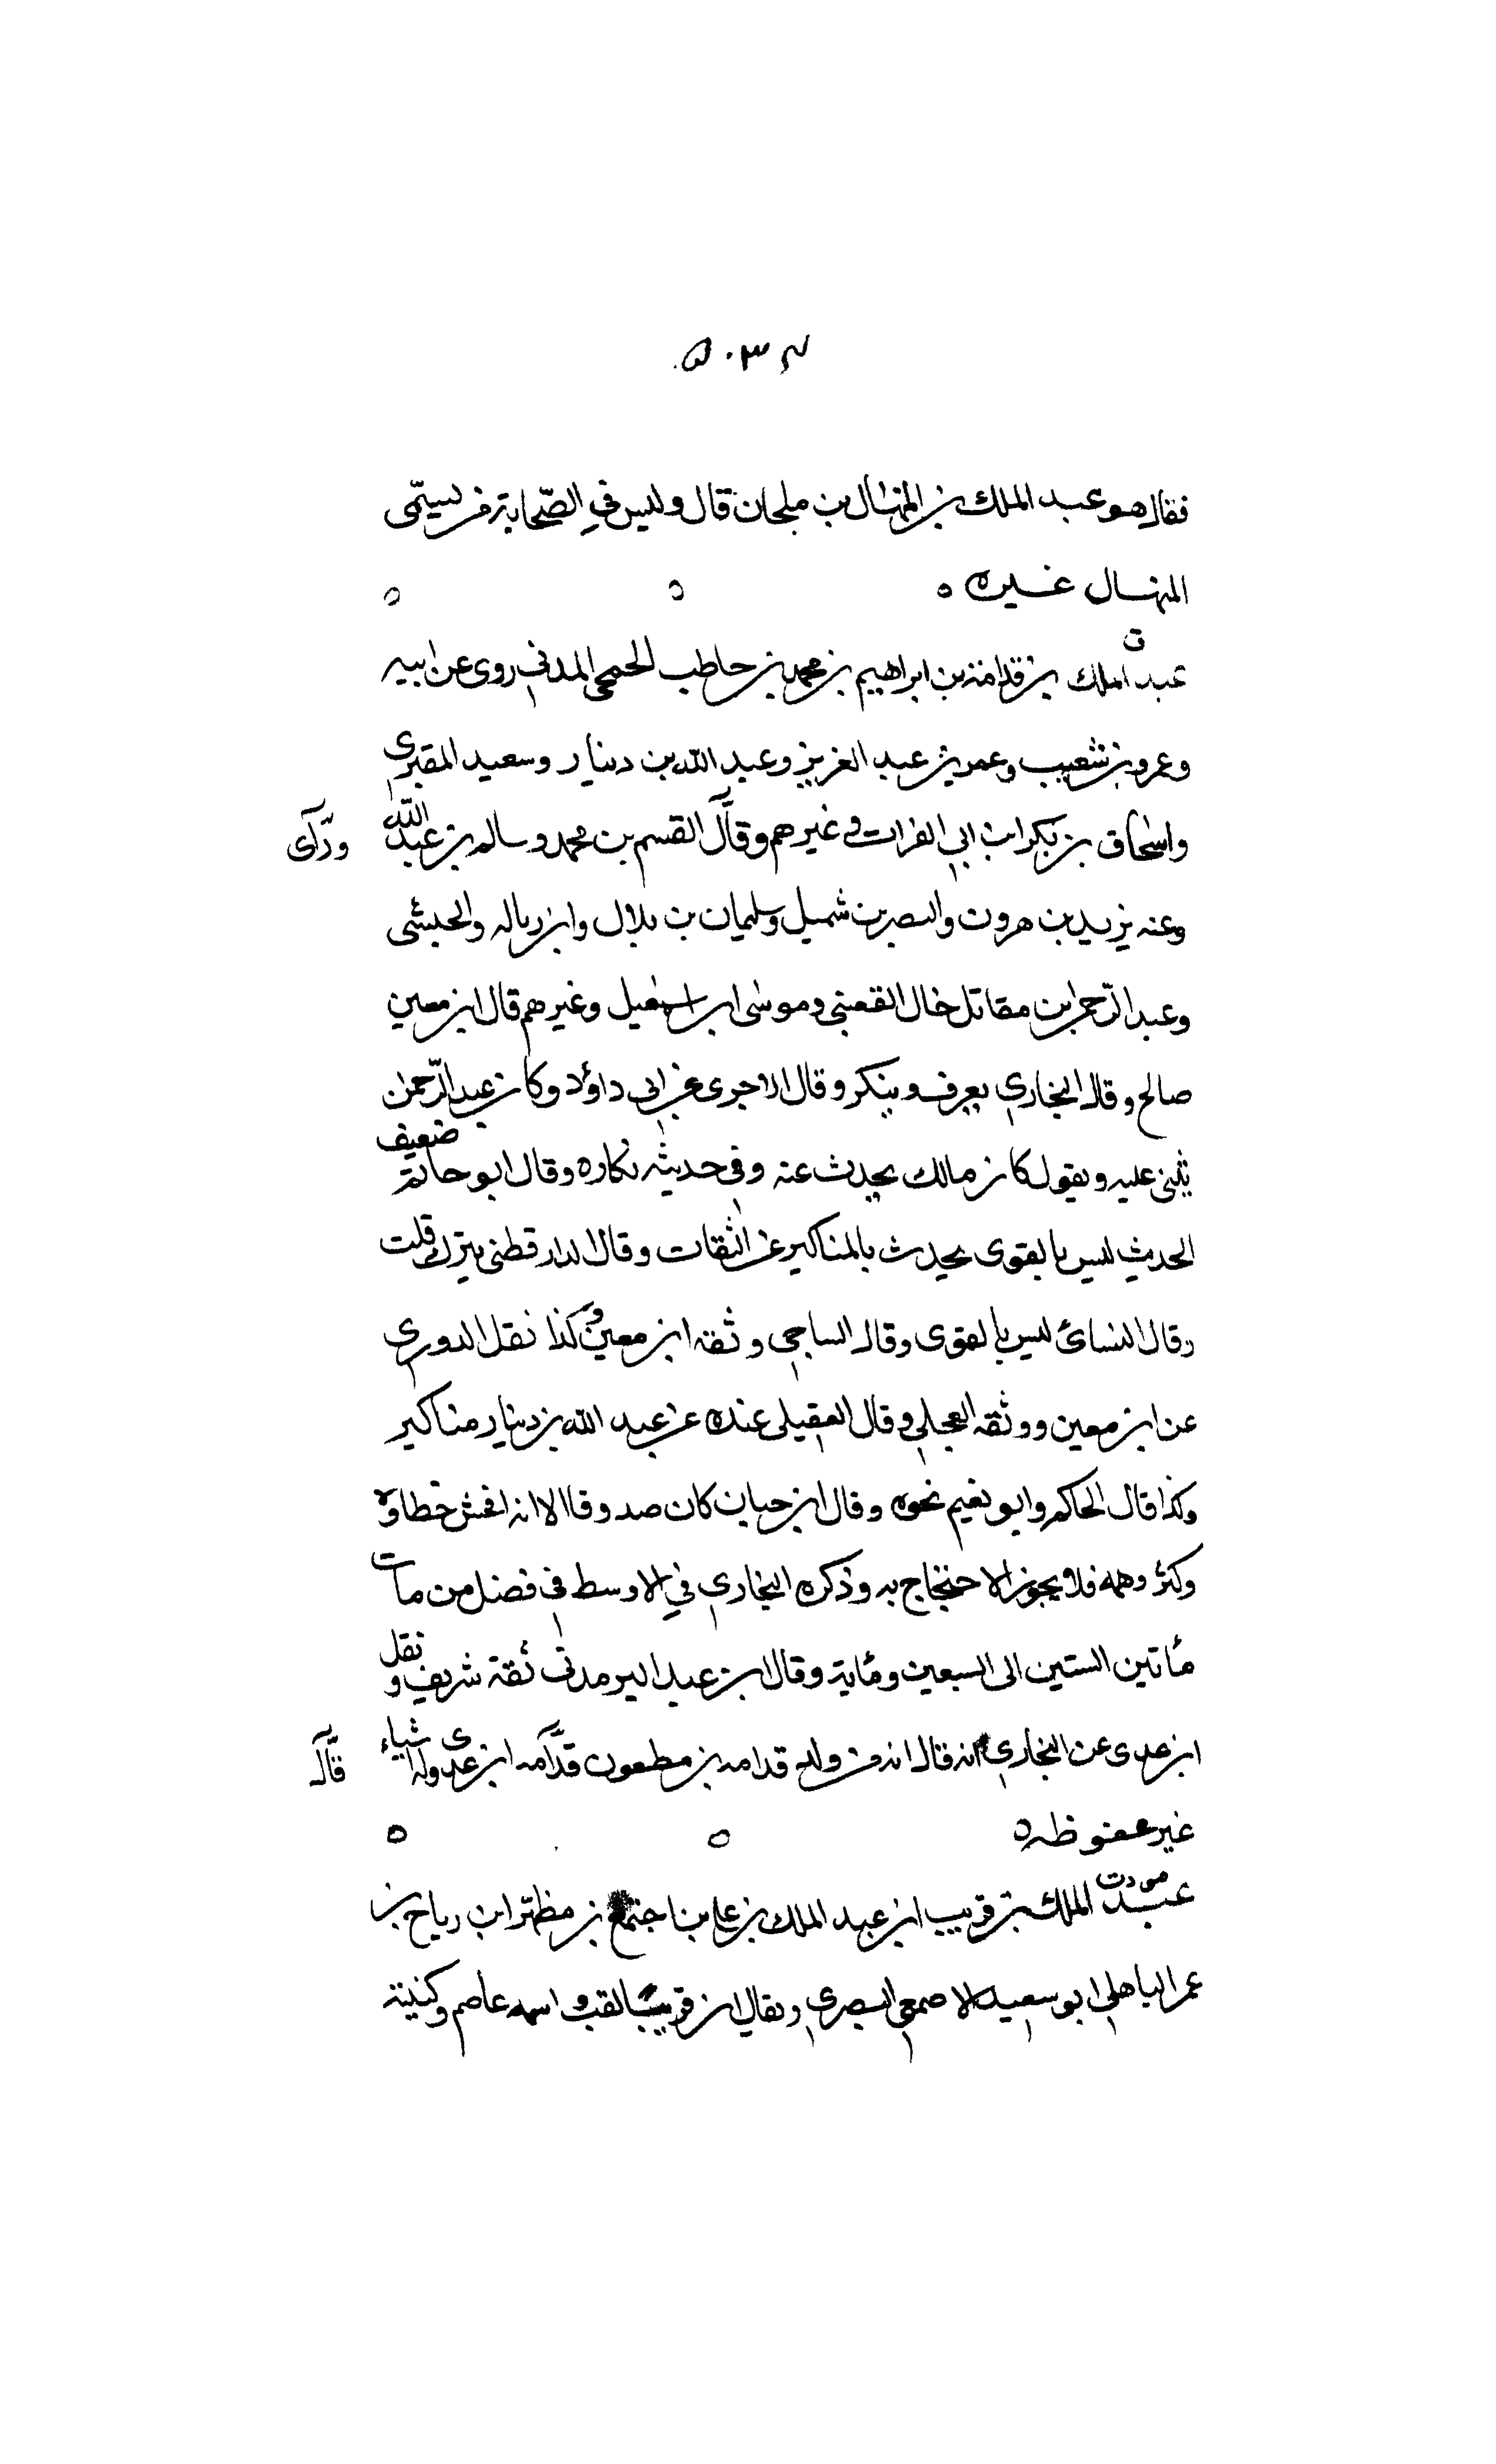 ٥٠٣٤
فقال هو عبد الملك بن المنهال بن ملحان قال وليس في الصّحابة من يسمّى
المنهال غيره ٥ ٥ ٥
ق
عبد الملك بن قدامة بن ابراهيم بن محمد بن حاطب الجمحي المدني روى عن ابيه
وعمرو بن شعيب وعمر بن عبد العزيز وعبد الله بن دينار وسعيد المقبري
واسحاق بن بكر ابن ابي الفرات وغيرهم وقال القسم بن محمد وسالم بن عبد الله
ورآى
وعنه يزيد بن هرون والنضر بن شميل وسليمان بن بلال وابن زباله
وعبد الرحمن بن مقاتل خال القعنبي وموسى ابن اسمعيل وغيرهم قال ابن معين
صالح وقال البخاري يعرف وينكر وقال الاجرى عن ابى داؤد وكان عبد الرّحمن
يثنى عليه ويقول كان مالك يحدث عنه وفي حديثه نكاره وقال ابو حاتم ضعيف
الحديث ليس بالقوى يحدث بالمناكير عن الثقات وقال الدارقطنى يترك قلت
وقال النسائ ليس بالقوى وقال الساجي وثقه ابن معين وكذا نقل الدوري
عن ابن معين ووثقه العجلي وقال العقيلى عنده عن عبد الله بن دينار مناكير
وكذا قال الحاكم وابو نعيم نحوه وقال ابن حبان كان صدوقا الا انه افحش خطاؤه
وكثر وهمه فلا يجوز الاحتجاج به وذكره البخاري في الاوسط في فضل من مات
مأتين الستين الى السبعين ومأية وقال ابن عبد البر مدنى ثقة شريف ونقل
ابن عدى عن البخاري انه قال انه من ولد قدامه بن مطعون قدّامه ابن عدى وله اشياء
قال
غير محفوظه ٥ ٥ ٥
م د ت
عبد الملك بن قريب ابن عبد الملك بن على بن اجتمع بن مظهّر ابن رياح بن
عمر الباهلي ابو سعيد الاصمعي البصري ويقال ان قريبا لقب واسمه عاصم وكنيته